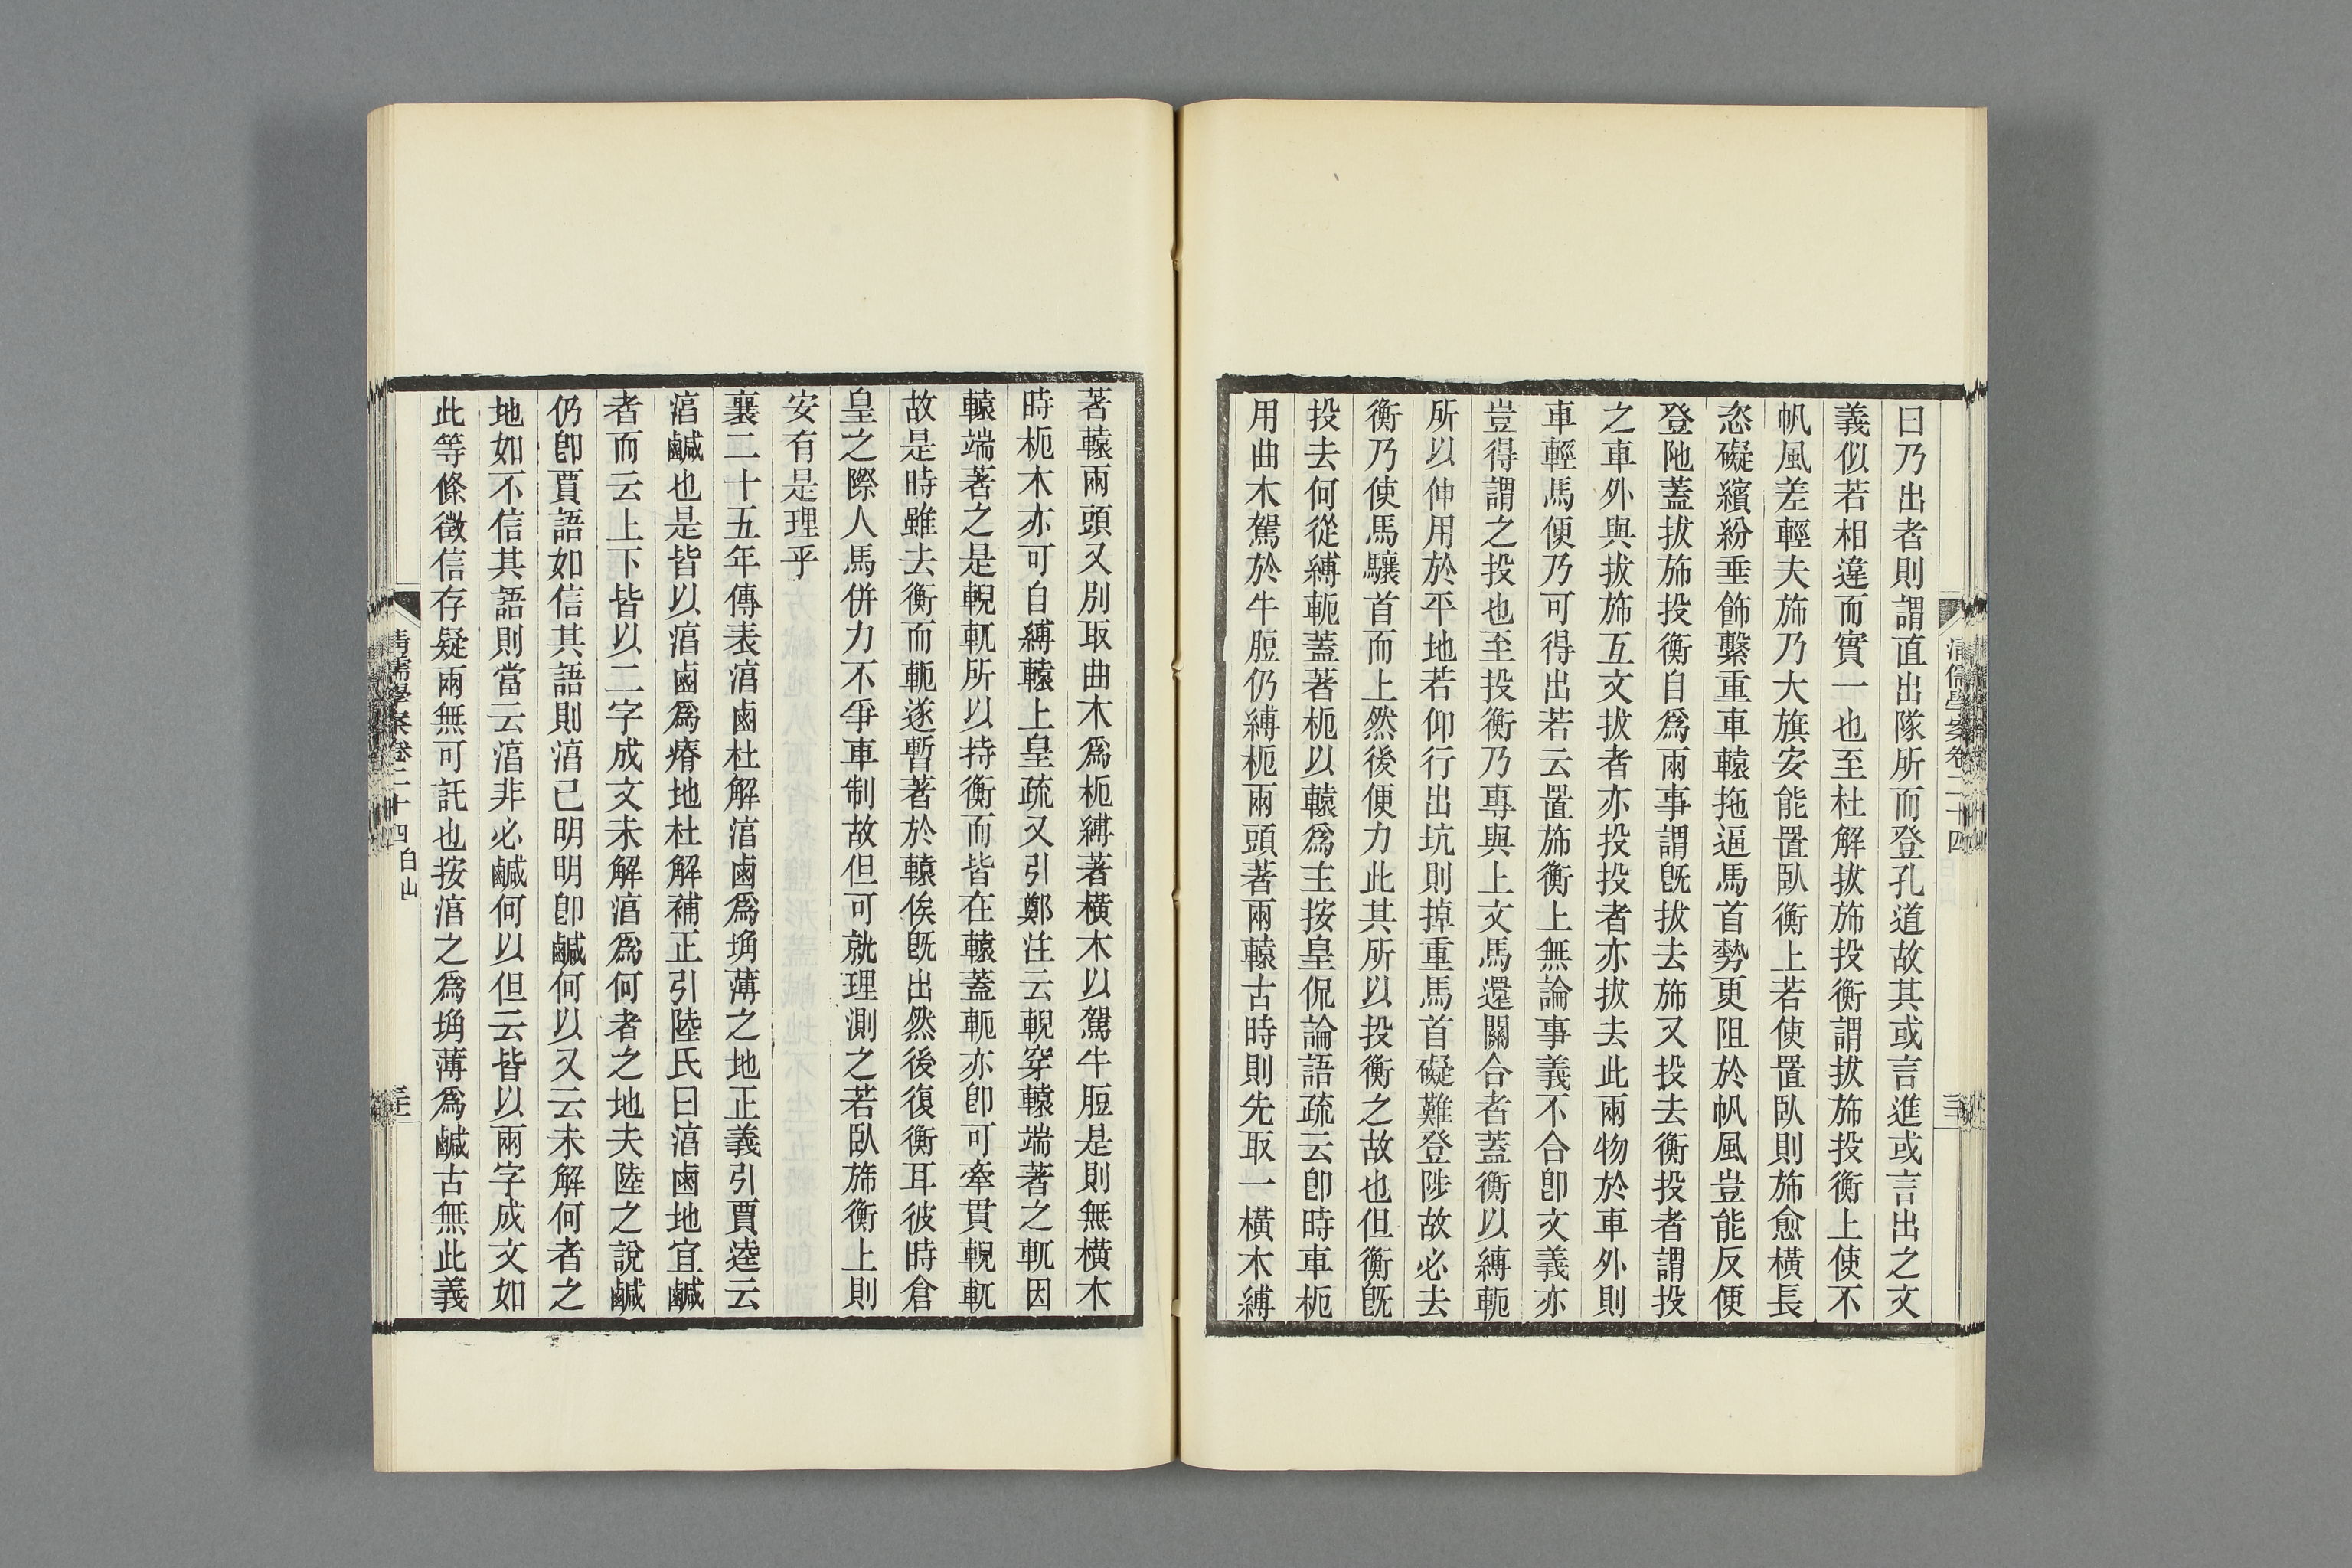 曰乃出者則謂直出隊所而登孔道故其或言進或言出之文
義似若相違而實一也至杜解拔斾投衡謂拔斾投衡上使不
帆風差輕夫斾乃大旗安能置臥衡上若使置臥則斾愈橫長
恣礙繽紛垂飾繫重車轅拖逼馬首勢更阻於帆風豈能反便
登阤蓋拔斾投衡自爲兩事謂旣拔去斾又投去衡投者謂投
之車外與拔斾互文拔者亦投投者亦拔去此兩物於車外則
車輕馬便乃可得出若云置斾衡上無論事義不合卽文義亦
豈得謂之投也至投衡乃專與上文馬還關合者蓋衡以縛軛
所以伸用於平地若仰行出坑則掉重馬首礙難登陟故必去
衡乃使馬驤首而上然後便力此其所以投衡之故也但衡旣
投去何從縛軛蓋著枙以轅爲主按皇侃論語疏云卽時車枙
用曲木駕於牛脰仍縛枙兩頭著兩轅古時則先取一橫木縛
著轅兩頭又別取曲木爲枙縛著橫木以駕牛脰是則無橫木
時枙木亦可自縛轅上皇疏又引鄭注云輗穿轅端著之軏因
轅端著之是輗軏所以持衡而皆在轅蓋軛亦卽可牽貫輗軏
故是時雖去衡而軛遂暫著於轅俟旣出然後復衡耳彼時倉
皇之際人馬併力不爭車制故但可就理測之若臥斾衡上則
安有是理乎
襄二十五年傳表淳鹵杜解淳鹵爲埆薄之地正義引賈逵云
淳鹹也是皆以淳鹵爲瘠地杜解補正引陸氏曰淳鹵地宜鹹
者而云上下皆以二字成文未解淳爲何者之地夫陸之說鹹
仍卽賈語如信其語則淳已明明卽鹹何以又云未解何者之
地如不信其語則當云淳非必鹹何以但云皆以兩字成文如
此等條徵信存疑兩無可託也按淳之爲埆薄爲鹹古無此義
清儒學案卷二十四 白山
清儒學案卷二十四